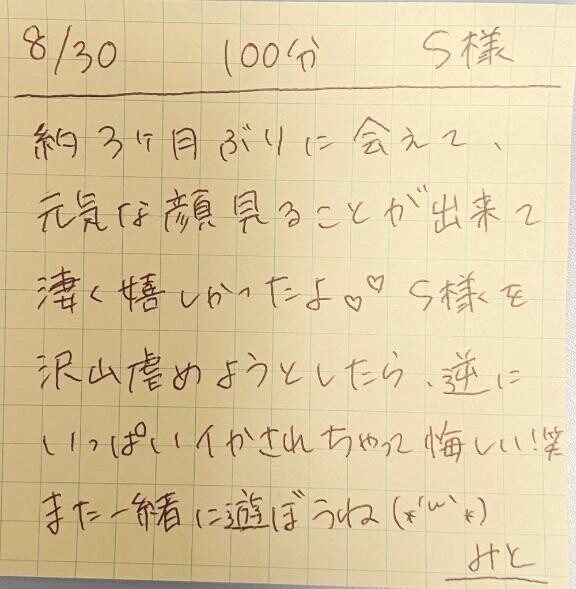 8/30 100分 S様
約3ヶ月ぶりに会えて、
元気な顔見ることが出来て
凄く嬉しかったよ♡♡ S様を
沢山虐めようとしたら、逆に
いっぱいイかされちゃって悔しい!笑
また一緒に遊ぼうね(*'ω'*)
みと